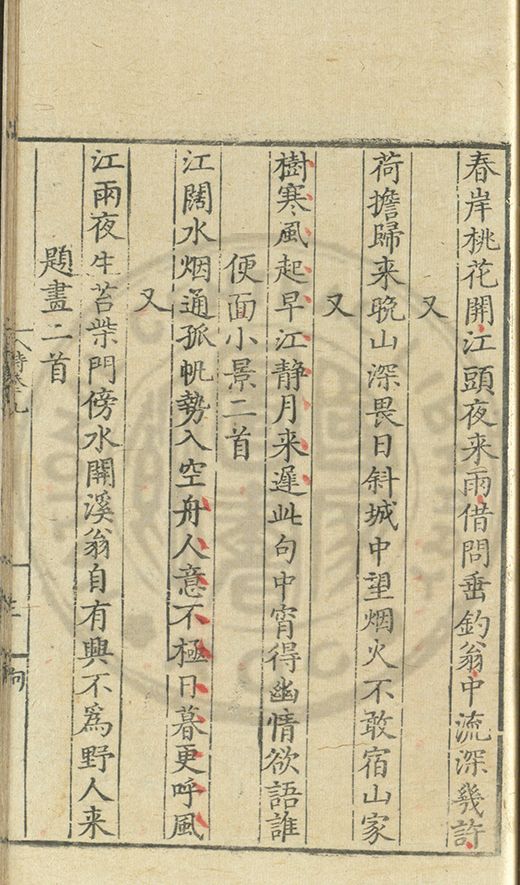 春岸桃花開江頭夜來雨借問垂釣翁中流深幾許
又
荷擔歸来晩山深畏日斜城中望烟火不敢宿山家
又
樹寒風起早江静月来遲此句中宵得幽情欲語誰
便面小景二首
江闊水烟通孤帆勢入空舟人意不極日暮更呼風
又
江雨夜生苔柴門傍水開溪翁自有興不爲野人来
題畫二首